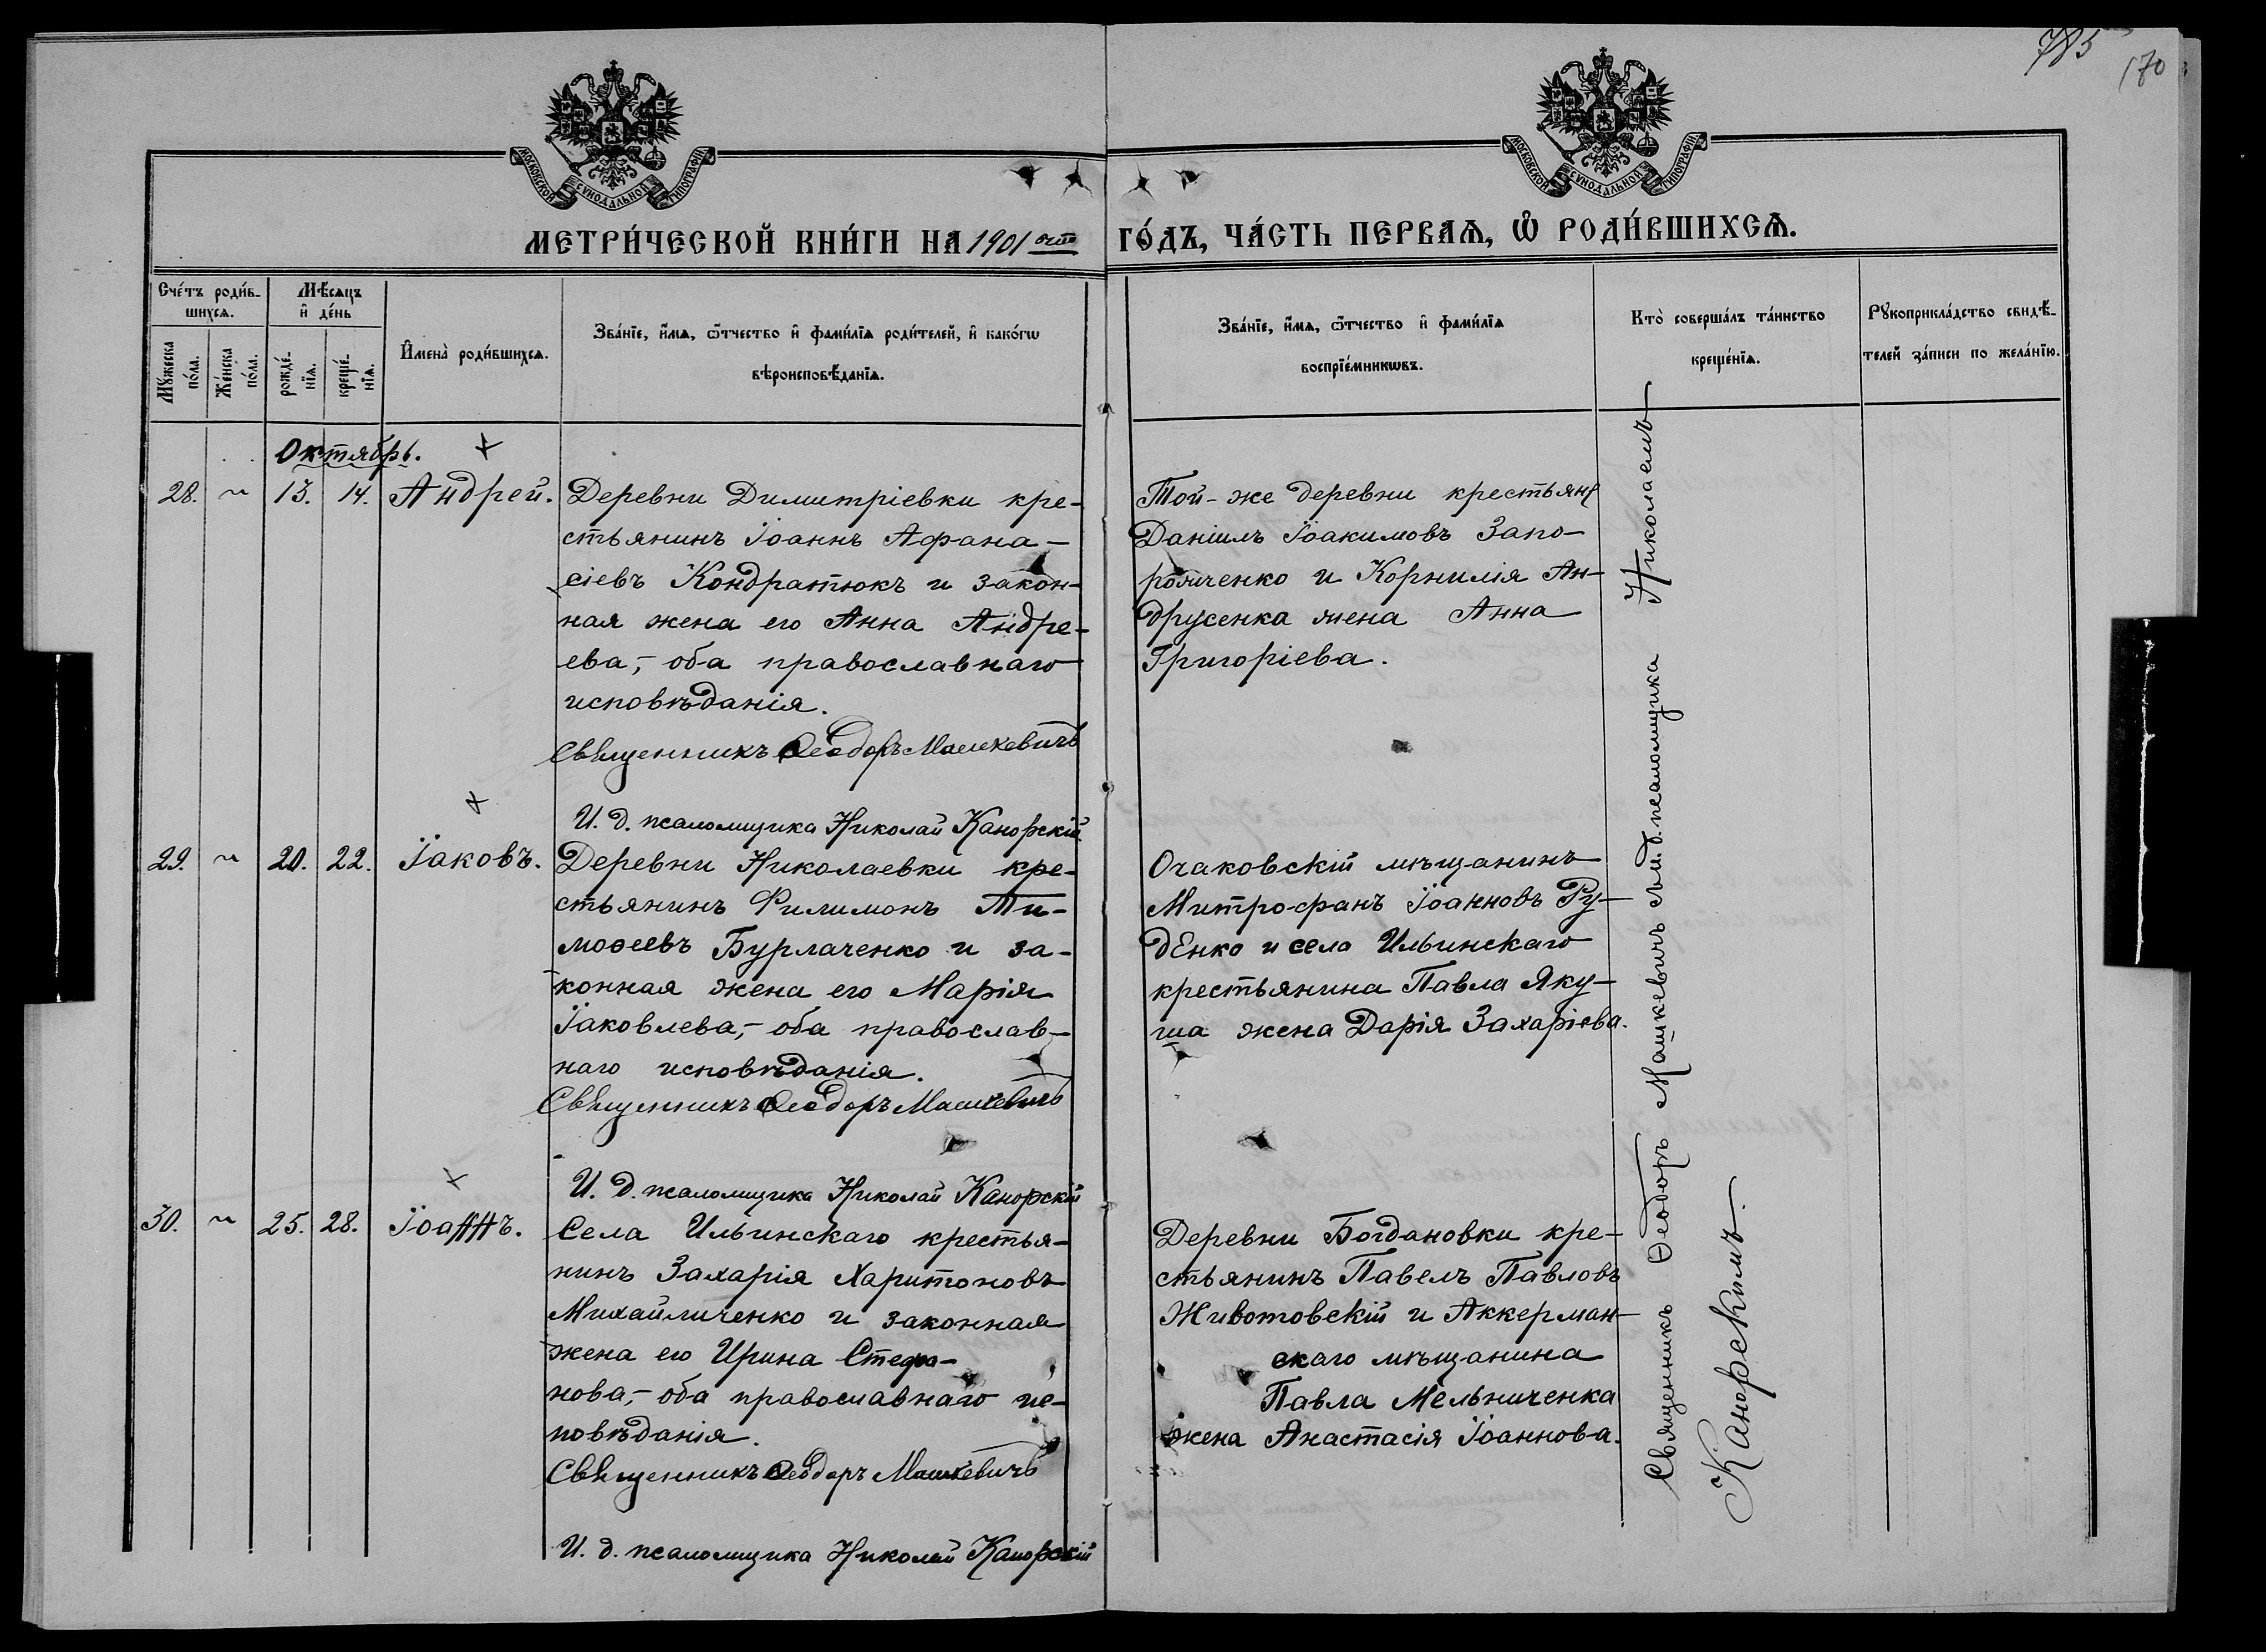 785
170
МОСКОВСКОЙ СУНОДАЛЬНОЙ ТИПОГРАФІИ
МОСКОВСКОЙ СУНОДАЛЬНОЙ ТИПОГРАФІИ
МЕТРИ́ЧЕСКОЙ КНИ́ГИ НА 1901 ГО́ДЪ, ЧА́СТЬ ПЕРВАЯ, Ѡ РОДИ́ВШИХСѦ.
Сче́тъ роди́в-
шихсѧ.
Мꙋжеска
по́ла.
Же́нска
по́ла.
Мѣ́сяцъ
и҆ де́нь
рожде́-
нїѧ.
креще́-
нїѧ.
И҆мена̀ роди́вшихсѧ.
Зва́нїе, и҆́мѧ, ѻ҆́тчество и҆ фами́лїѧ роди́телей, и҆ како́гѡ
вѣроисповѣ́данїѧ.
Зва́нїе, и҆́мѧ, ѻ҆́тчество и҆ фами́лїѧ
воспрїе́мникѡвъ.
Кто̀ соверша́лъ та́инство
креще́нїѧ.
Рꙋкоприкла́дство свидѣ́-
телей за́писи по жела́нїю.
Октябрь.
28. ~ 13. 14. Андрей.
Деревни Димитріевки кре-
стьянинъ Іоаннъ Афана-
сіевъ Кондратюкъ и закон-
ная жена его Анна Андре-
ева,- оба православнаго
исповѣданія.
Священникъ Ѳеодоръ Машкевичъ
И. д. псаломщика Николай Канорскій
Той-же деревни крестьян.
Даніилъ Іоакимовъ Запо-
рожченко и Корнилія Ан-
друсенка жена Анна
Григоріева.
29. ~ 20. 22. Іаковъ.
Деревни Николаевки кре-
стьянинъ Филимонъ Ти-
моѳеевъ Бурлаченко и за-
конная жена его Марія
Іаковлева,- оба православ-
наго исповѣданія.
Священникъ Ѳеодоръ Машкевичъ
И. д. псаломщика Николай Канорскій
Очаковскій мѣщанинъ
Митрофанъ Іоанновъ Ру-
денко и села Ильинскаго
крестьянина Павла Яку-
ша жена Дарія Захаріева.
30. ~ 25. 28. Іоаннъ.
Села Ильинскаго крестья-
нинъ Захарія Харитоновъ
Михайличенко и законная
жена его Ирина Стефа-
нова,- оба православнаго ис-
повѣданія.
Священникъ Ѳеодоръ Машкевичъ
И. д. псаломщика Николай Канорскій
Деревни Богдановки кре-
стьянинъ Павелъ Павловъ
Животовскій и Аккерман-
скаго мѣщанина
Павла Мельниченка
жена Анастасія Іоаннова.
Священникъ Ѳеодоръ Машкевичъ съ и. д. псаломщика Николаемъ
Канорскимъ.